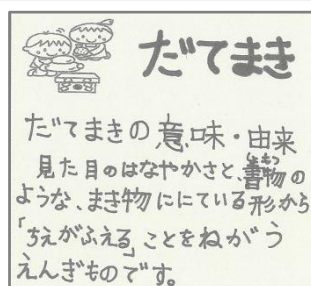 だてまき
だてまきの意味・由来
見た目のはなやかさと、書物の
ような、まき物ににている形から
「ちえがふえる」ことをねがう
えんぎものです。